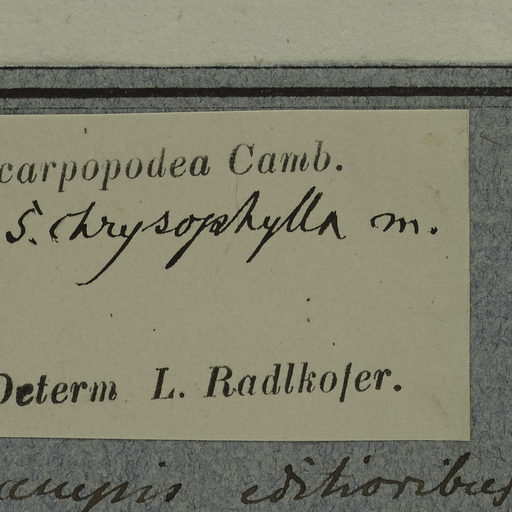 carpopodea Camb.
S. chrysophylla m.
Determ L. Radlkofer.
campis editioribus